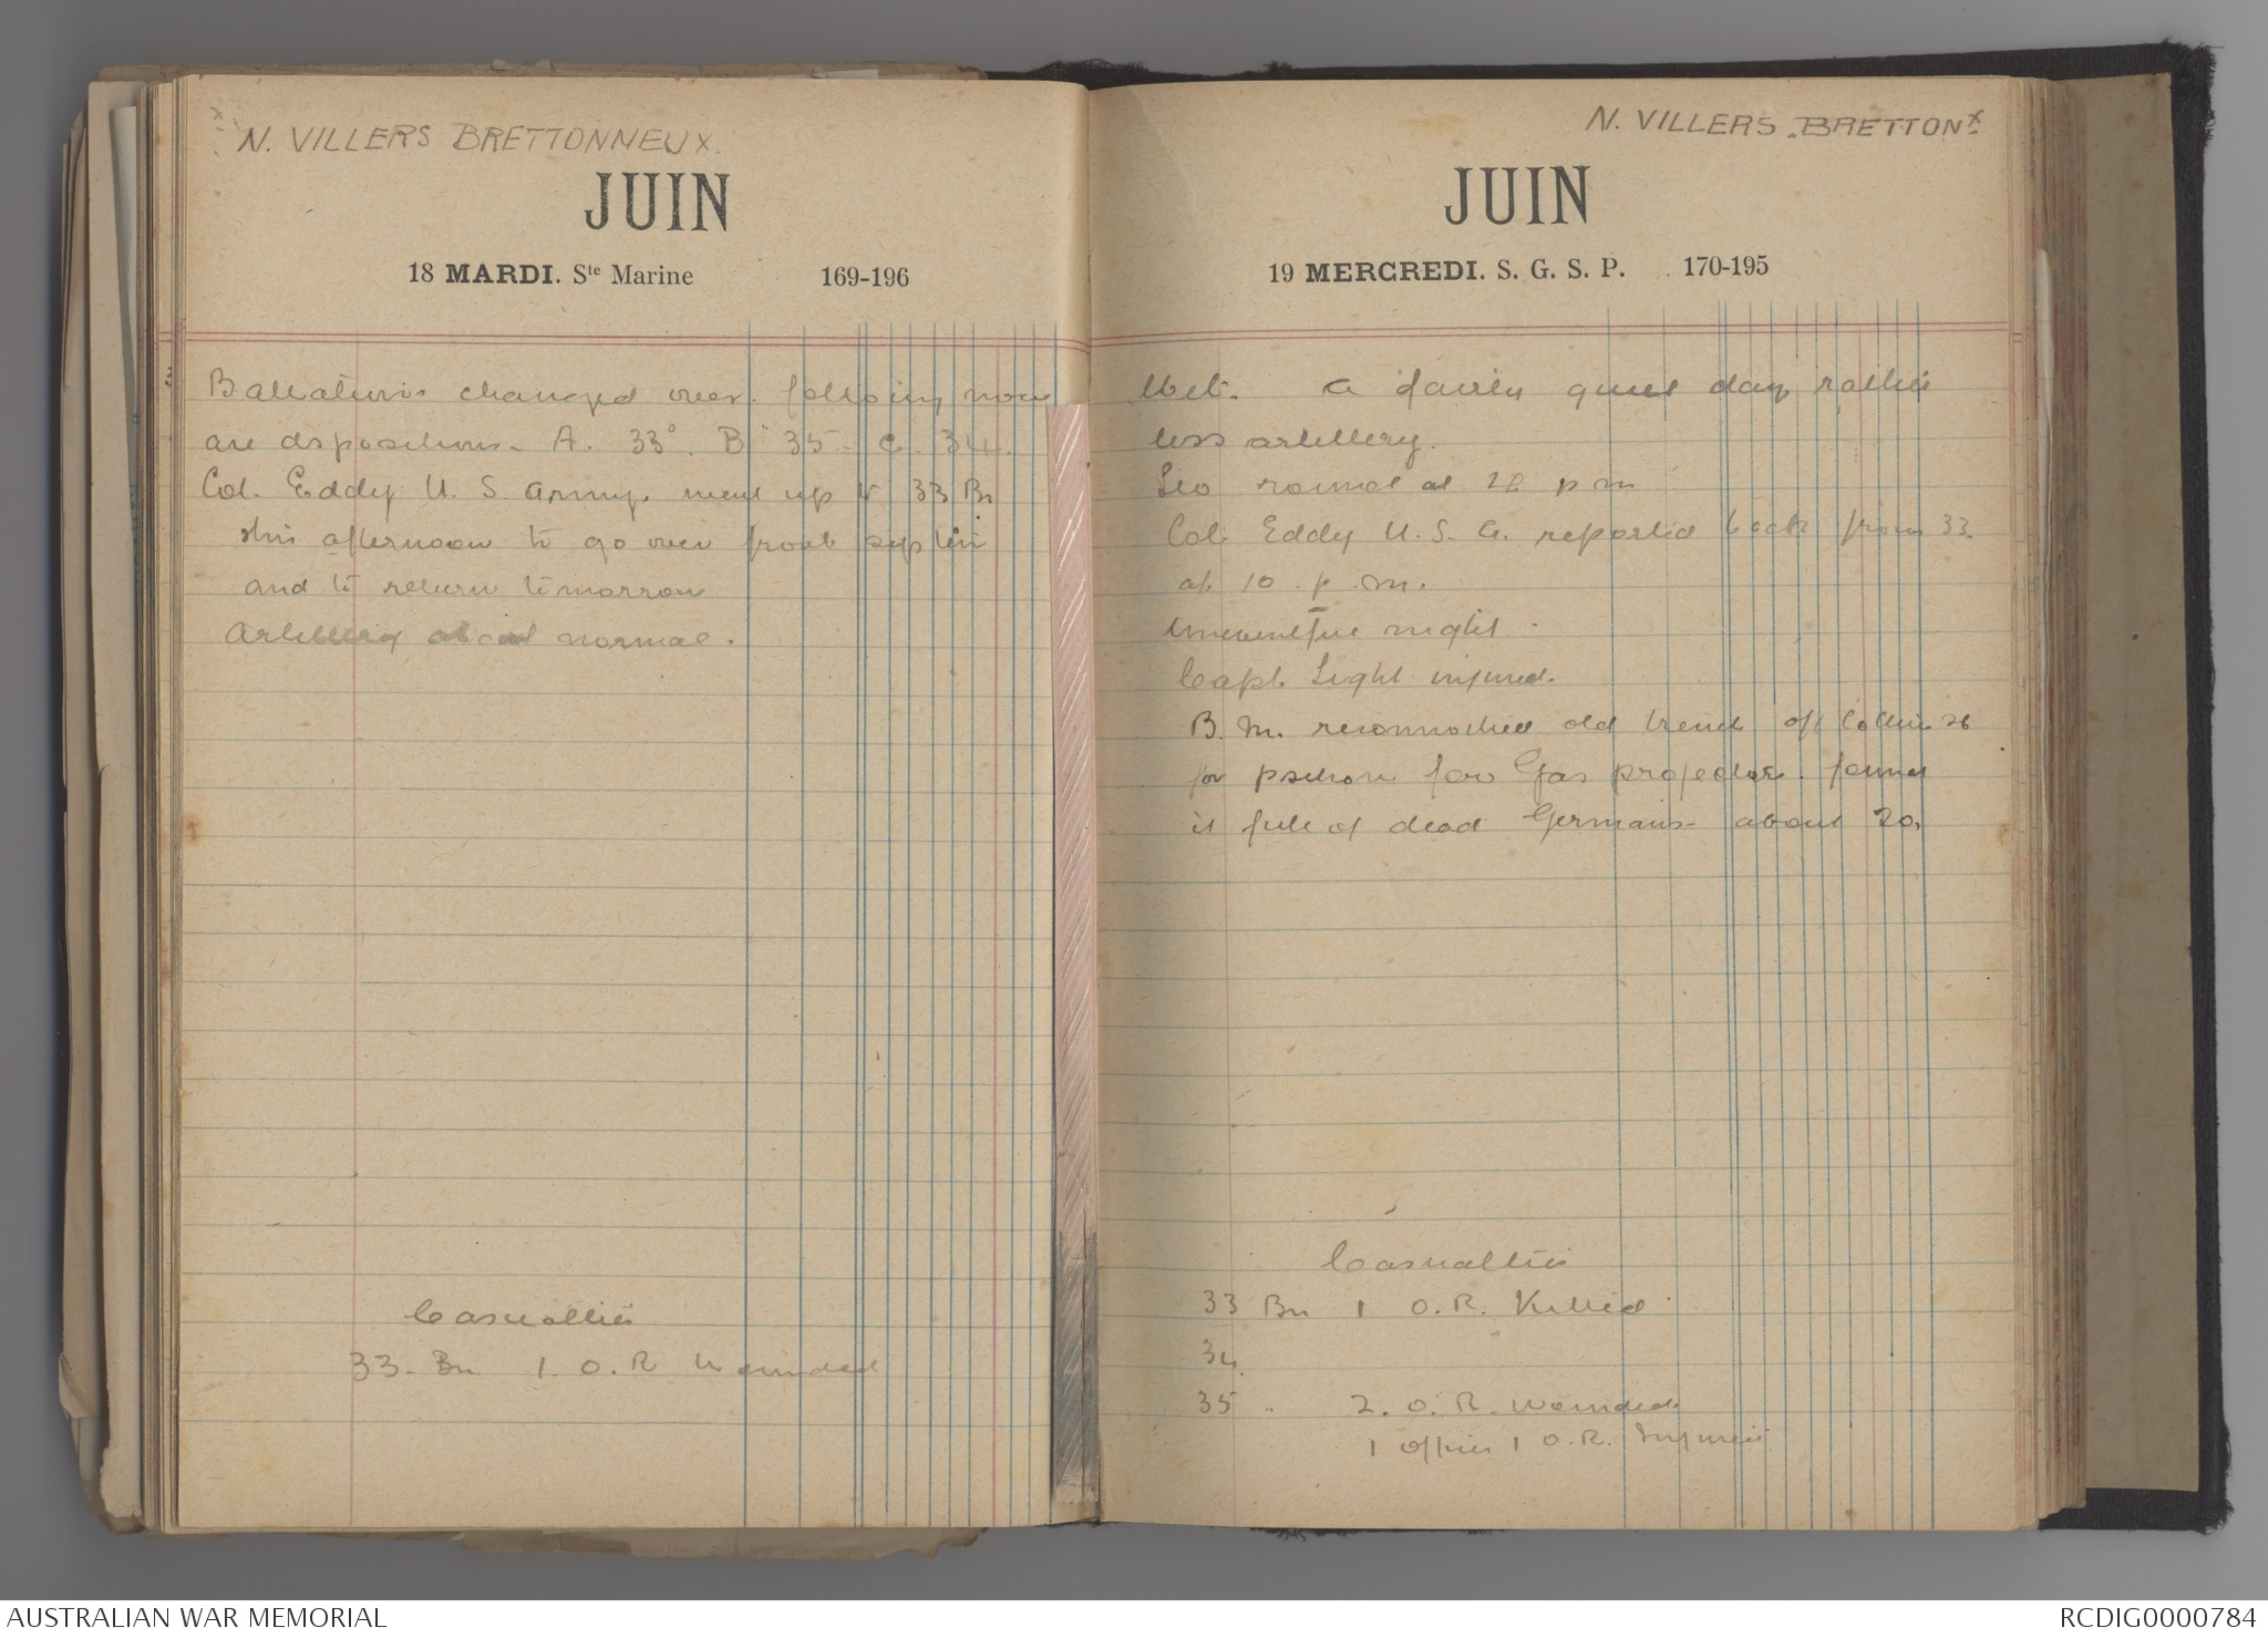 N. VILLERS BRETTONNEUX.
JUIN
18 MARDI. Ste Marine 169-196
Battalions changed over. following now
are dispositions. A. 33. B 35. C. 34.
Col. Eddy U. S. Army. went up to 33 Bn
this afternoon to go over front system
and to return tomorrow
Artillery about normal.
Casualties
33. Bn 1. O. R Wounded
N. VILLERS BRETTONx
JUIN
19 MERCREDI. S. G. S. P. 170-195
Wet. A fairly quiet day rather
less artillery.
round at p m
Col. Eddy U. S. A. reported back from 33.
at 10. p. m.
Uneventful night.
Capt. Light injured.
B. M. reconnoitred old trench off
for position for Gas projectors. found
it full of dead Germans - about 20.
Casualties
33 Bn 1 O. R. Killed
34
35 " 2. O. R. wounded
1 Officer 1 O. R. Injured
AUSTRALIAN WAR MEMORIAL
RCDIG0000784